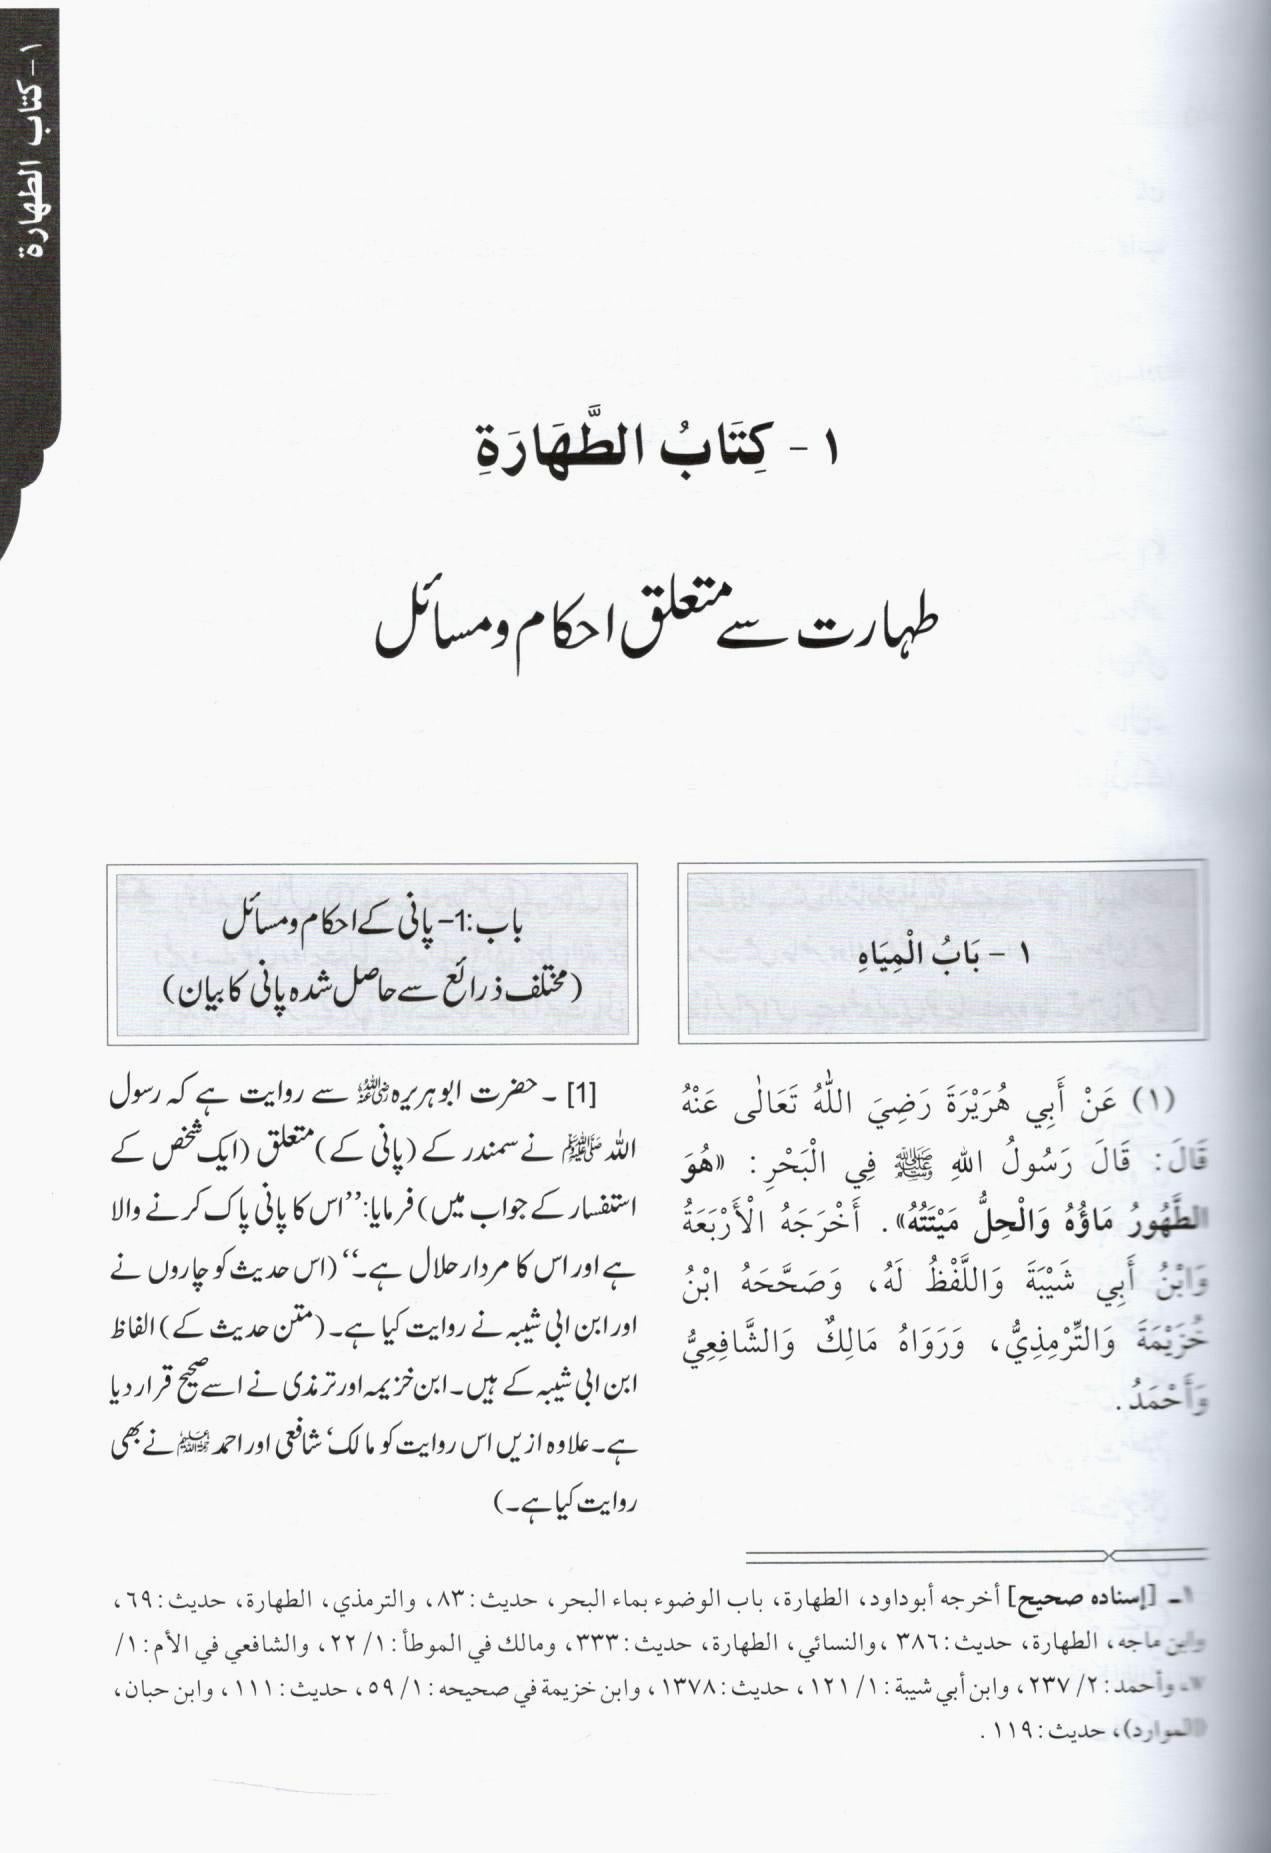 ١ - كتاب الطهارة
١ - كِتَابُ الطَّهَارَةِ
طہارت سے متعلق احکام و مسائل
١ - بَابُ الْمِيَاهِ
(١) عَنْ أَبِي هُرَيْرَةَ رَضِيَ اللهُ تَعَالٰى عَنْهُ
قَالَ: قَالَ رَسُولُ اللهِ ﷺ فِي الْبَحْرِ: «هُوَ
الطَّهُورُ مَاؤُهُ وَالْحِلُّ مَيْتَتُهُ». أَخْرَجَهُ الْأَرْبَعَةُ
وَابْنُ أَبِي شَيْبَةَ وَاللَّفْظُ لَهُ، وَصَحَّحَهُ ابْنُ
خُزَيْمَةَ وَالتِّرْمِذِيُّ، وَرَوَاهُ مَالِكٌ وَالشَّافِعِيُّ
وَأَحْمَدُ.
باب:1- پانی کے احکام و مسائل
(مختلف ذرائع سے حاصل شدہ پانی کا بیان)
[1] ۔ حضرت ابوہریرہ رضی اللہ عنہ سے روایت ہے کہ رسول
اللہ ﷺ نے سمندر کے (پانی کے) متعلق (ایک شخص کے
استفسار کے جواب میں) فرمایا: ’’اس کا پانی پاک کرنے والا
ہے اور اس کا مردار حلال ہے۔‘‘ (اس حدیث کو چاروں نے
اور ابن ابی شیبہ نے روایت کیا ہے۔ (متن حدیث کے) الفاظ
ابن ابی شیبہ کے ہیں۔ ابن خزیمہ اور ترمذی نے اسے صحیح قرار دیا
ہے۔ علاوہ ازیں اس روایت کو مالک‘ شافعی اور احمد نے بھی
روایت کیا ہے۔)
١ـ [إسناده صحيح] أخرجه أبوداود، الطهارة، باب الوضوء بماء البحر، حديث:٨٣، والترمذي، الطهارة، حديث:٦٩،
وابن ماجه، الطهارة، حديث:٣٨٦ ،والنسائي، الطهارة، حديث:٣٣٣، ومالك في الموطأ:١/ ٢٢، والشافعي في الأم:١/
٧، وأحمد:٢/ ٢٣٧، وابن أبي شيبة:١/ ١٢١، حديث:١٣٧٨، وابن خزيمة في صحيحه:١/ ٥٩، حديث:١١١، وابن حبان،
(الموارد)، حديث:١١٩ .